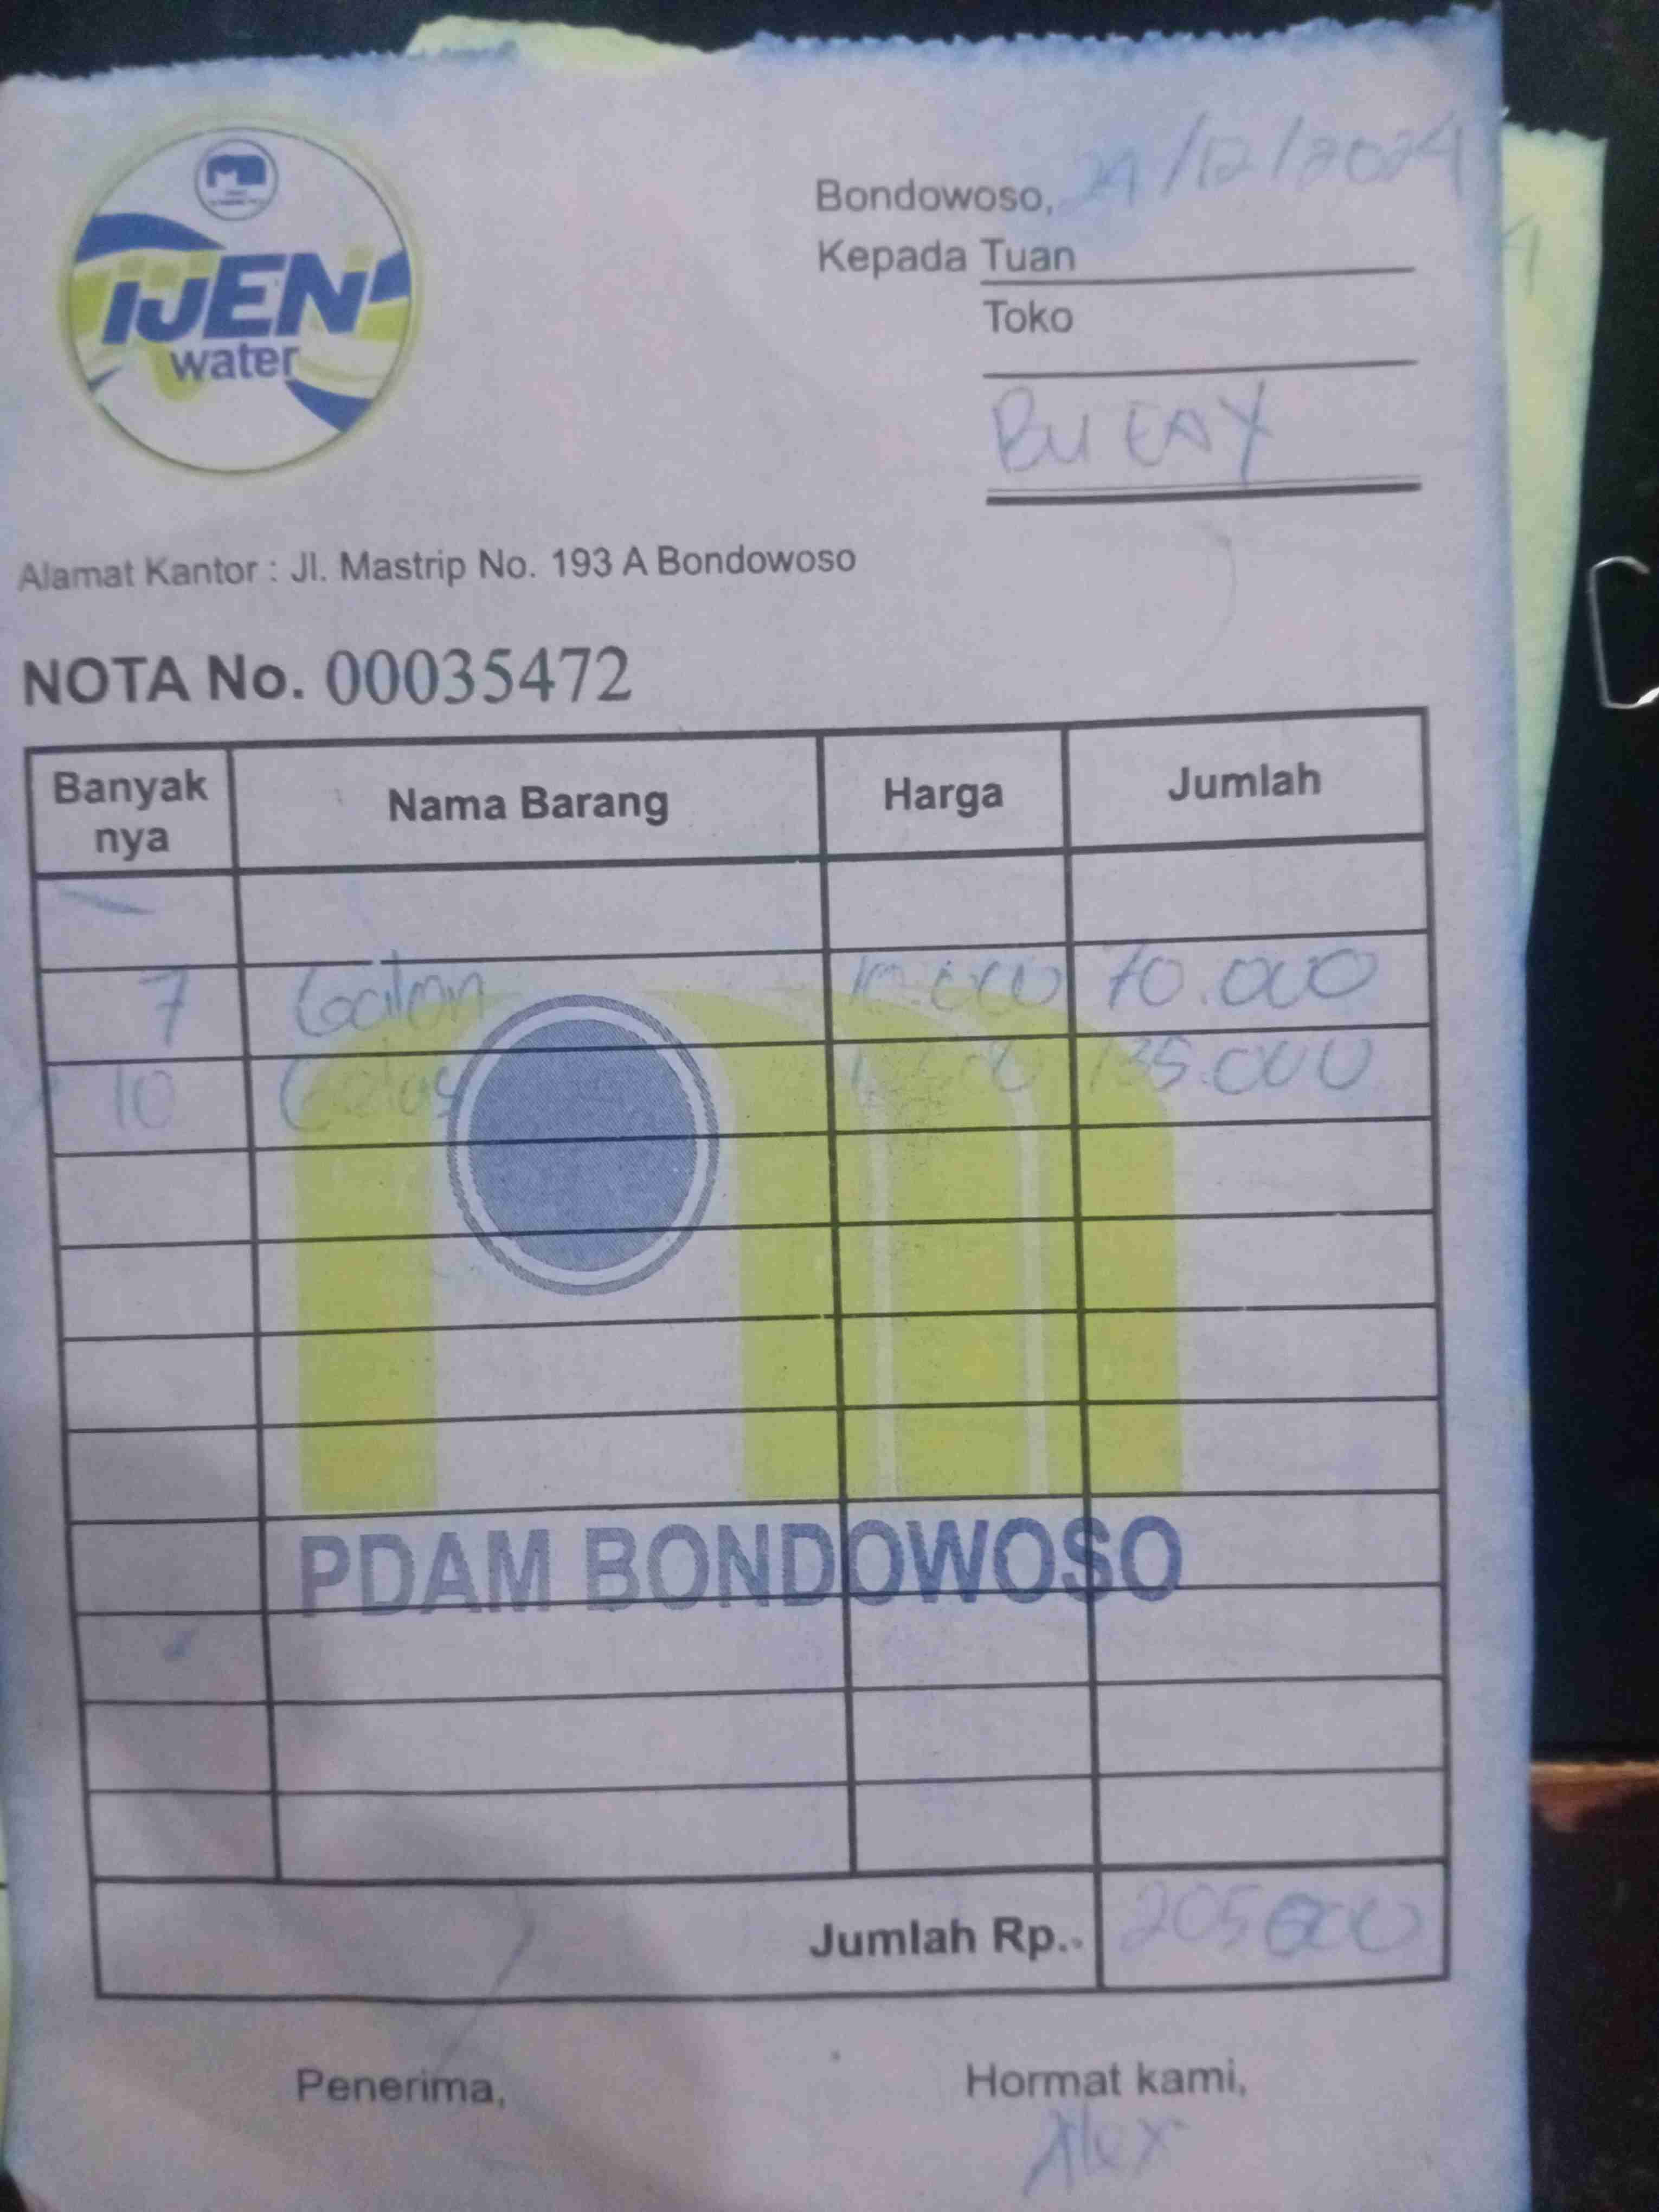 IJEN
water
Bondowoso, 24/12/2024
Kepada Tuan
Toko
Bu
Alamat Kantor : Jl. Mastrip No. 193 A Bondowoso
NOTA No. 00035472
Banyak nya Nama Barang Harga Jumlah
7 Galon 10.000 70.000
10 135.000
PDAM BONDOWOSO
Jumlah Rp.. 205000
Penerima, Hormat kami,
Alex